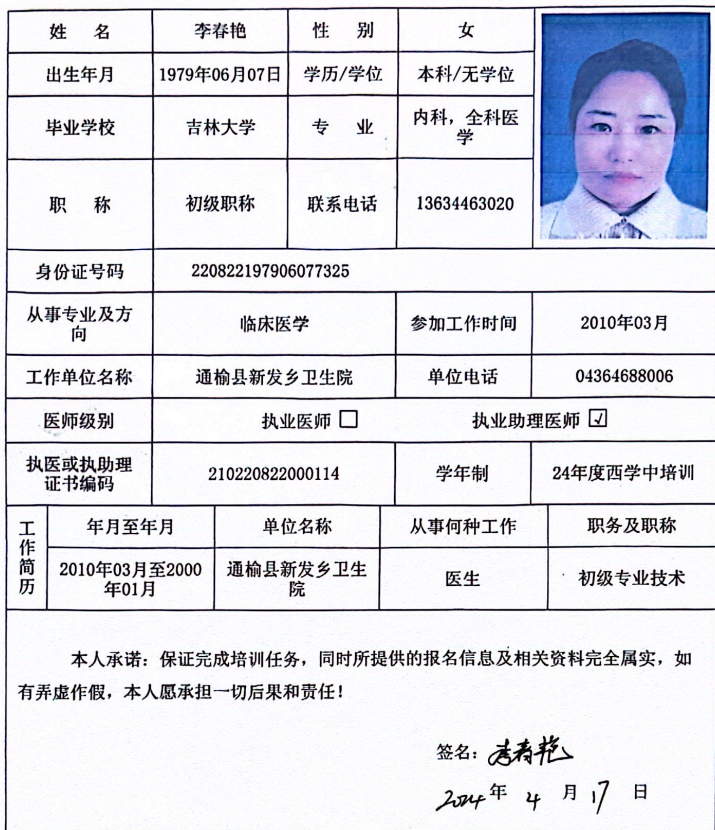 姓 名 李春艳 性 别 女
出生年月 1979年06月07日 学历/学位 本科/无学位
毕业学校 吉林大学 专 业 内科，全科医
学
职 称 初级职称 联系电话 13634463020
身份证号码 220822197906077325
从事专业及方
向 临床医学 参加工作时间 2010年03月
工作单位名称 通榆县新发乡卫生院 单位电话 04364688006
医师级别 执业医师 □ 执业助理医师 ☑
执医或执助理
证书编码 210220822000114 学年制 24年度西学中培训
工作简历 年月至年月 单位名称 从事何种工作 职务及职称
2010年03月至2000
年01月 通榆县新发乡卫生
院 医生 初级专业技术
本人承诺：保证完成培训任务，同时所提供的报名信息及相关资料完全属实，如
有弄虚作假，本人愿承担一切后果和责任！
签名：李春艳
2024 年 4 月 17 日